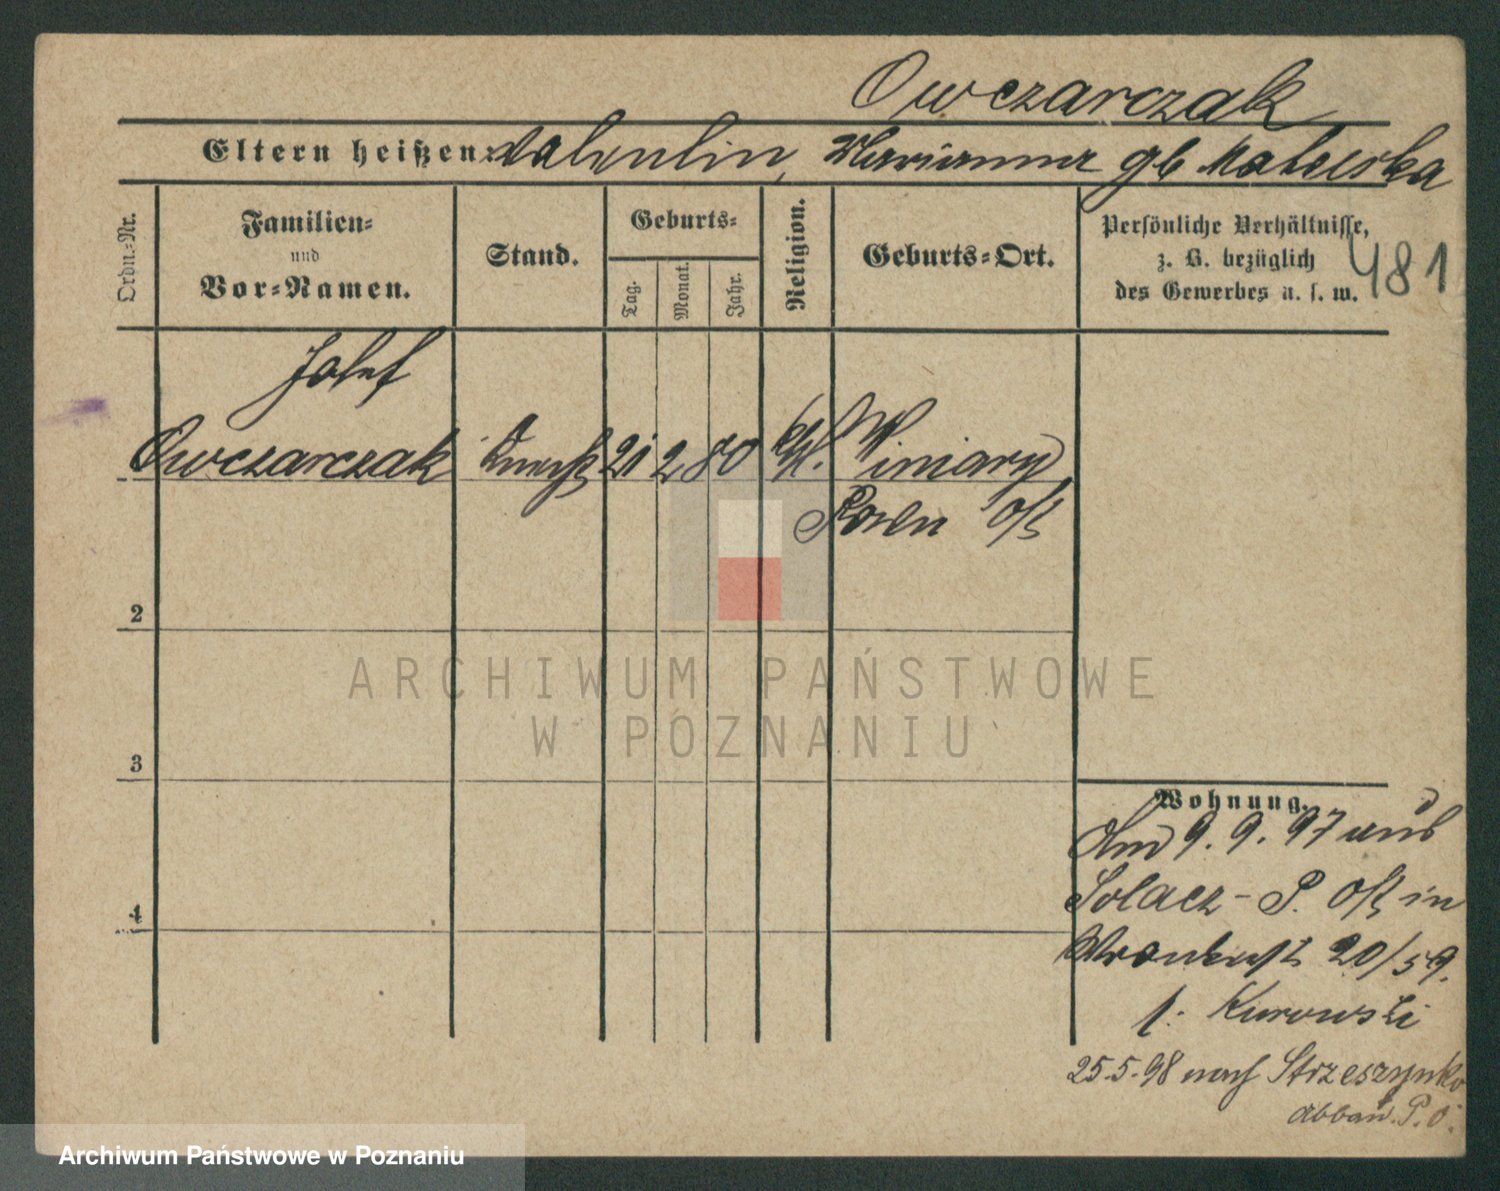 Owczarczak
Eltern heißen: Valentin, Marianna gb Matecka
Ordn.-Nr.
Familien-
und
Vor-Namen.
Stand.
Geburts-
Tag.
Monat.
Jahr.
Religion.
Geburts-Ort.
Persönliche Verhältnisse,
z. B. bezüglich
des Gewerbes u. s. w.
481
Josef
Owczarczak Knecht 21 2 80 kth. Winiary
Posen Ost
2
3
4
Wohnung.
Am 9. 9. 97 aus
Solacz - P. Ost in
Wronkerst 20/59.
b. Kurowski
25.5.98 nach Strzeszynko
Abbau. P. O.
ARCHIWUM PAŃSTWOWE
W POZNANIU
Archiwum Państwowe w Poznaniu